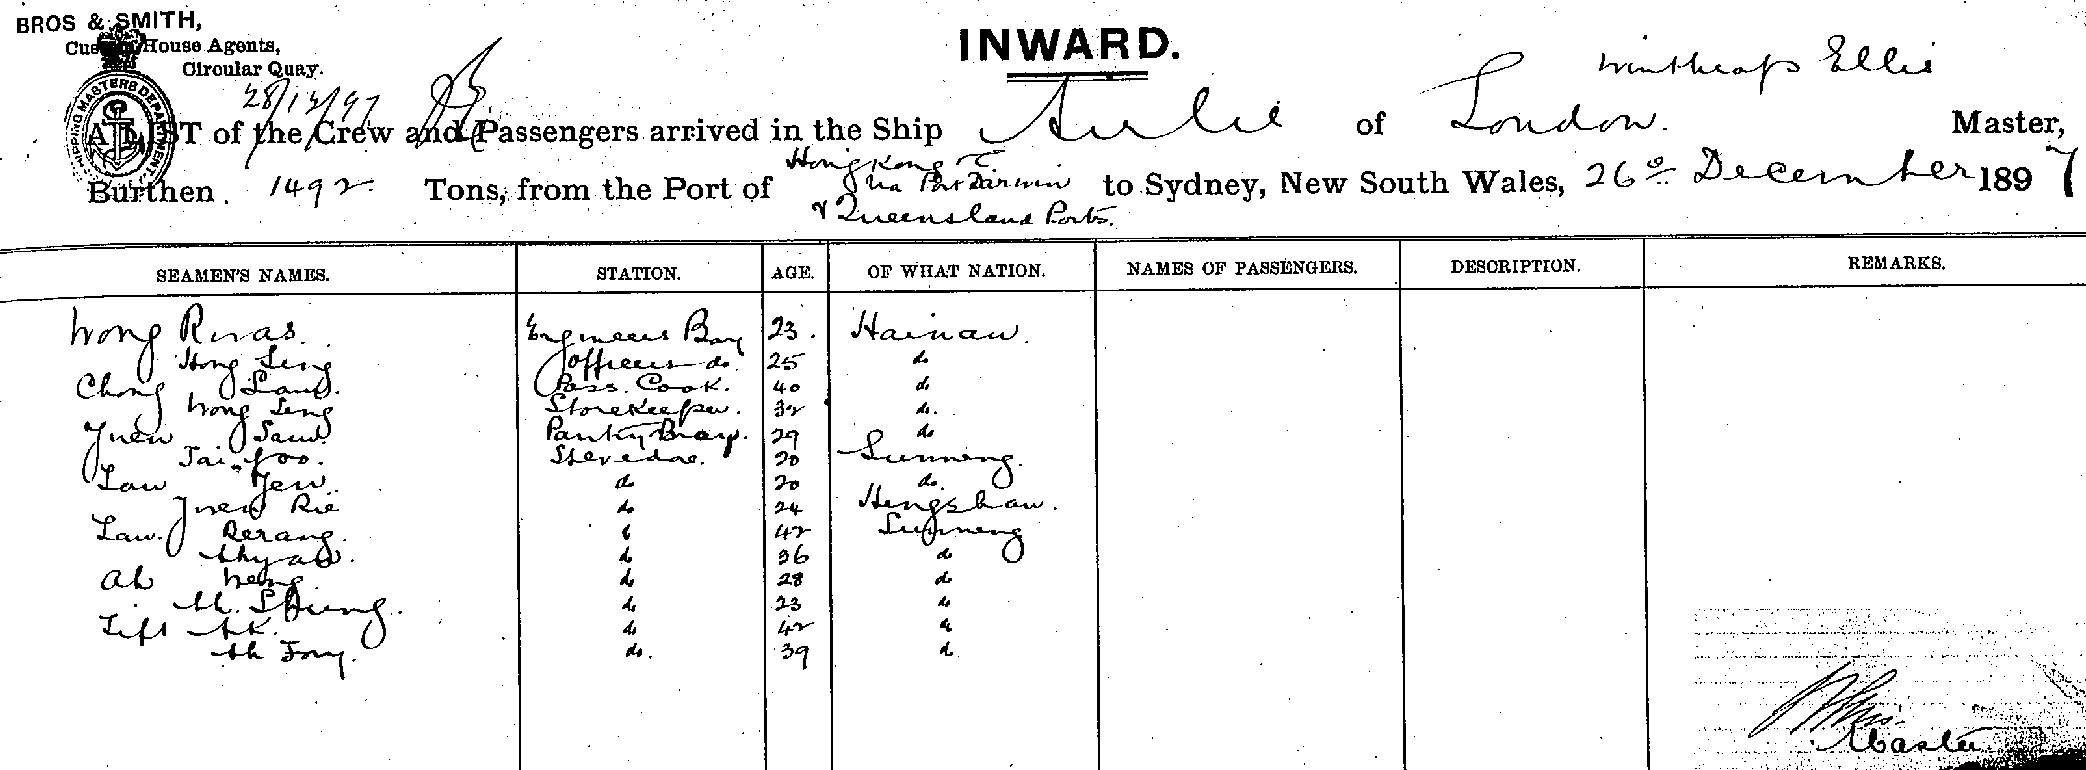 BROS & SMITH,
Custom House Agents,
Circular Quay.
28/12/97
INWARD.
Winthrop Ellis
A LIST of the Crew and Passengers arrived in the Ship Airlie of London. Master,
Burthen 1492 Tons, from the Port of Hong Kong via Port Darwin & Queensland Ports. to Sydney, New South Wales, 26th December 1897
SHIPPING MASTERS DEPARTMENT
SEAMEN'S NAMES. STATION. AGE. OF WHAT NATION. NAMES OF PASSENGERS. DESCRIPTION. REMARKS.
Wong Engineers Boy 23. Hainan.
Hong Seng Officers do. 25 do
Chong Pass. Cook. 40 do
Wong Seng Storekeeper. 32 do.
Yuen Pantry Boy. 29 do
Tai Foo. Stevedore. 20 Sunneng.
Law Yew. do 20 do.
Yuen Rie do 24 Hengshan.
Law. 42 Sunneng
do 36 do
Ah do 28 do
do 23 do
do 42 do
Ah Fong. do. 39 do
Master